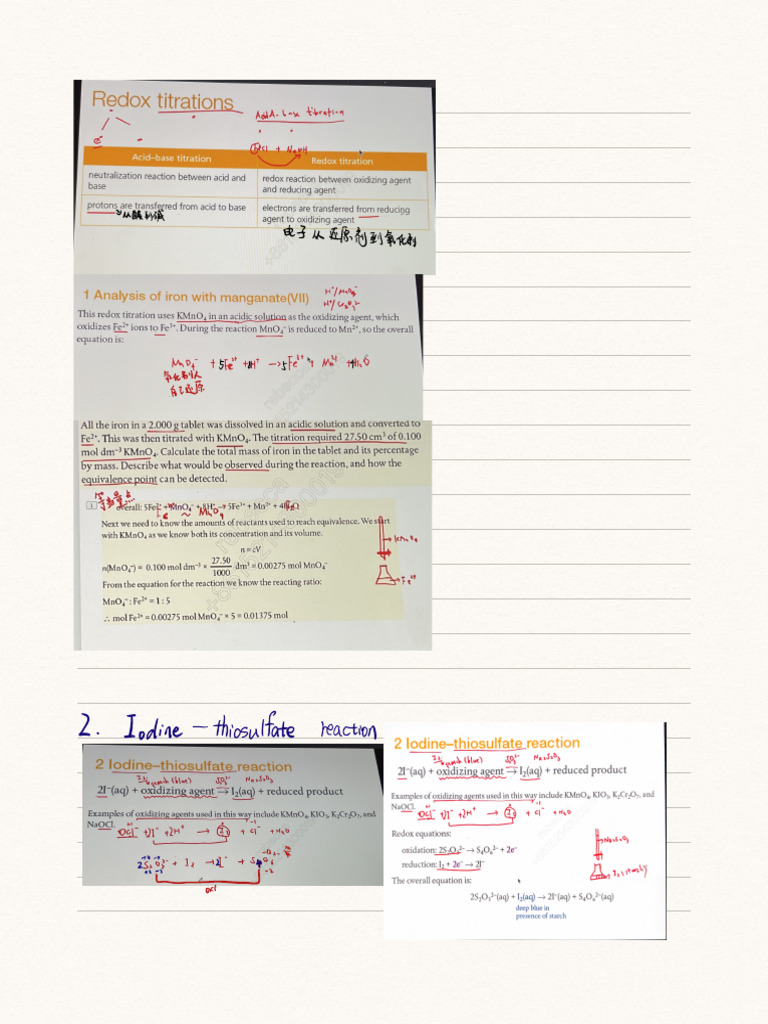 Redox titrations
Acid-base titration
e⁻
HCl + NaOH
Acid–base titration Redox titration
neutralization reaction between acid and base redox reaction between oxidizing agent and reducing agent
protons are transferred from acid to base electrons are transferred from reducing agent to oxidizing agent
从酸到碱
电子从还原剂到氧化剂
1 Analysis of iron with manganate(VII)
H⁺/MnO₄⁻
H⁺/Cr₂O₇²⁻
This redox titration uses KMnO₄ in an acidic solution as the oxidizing agent, which
oxidizes Fe²⁺ ions to Fe³⁺. During the reaction MnO₄⁻ is reduced to Mn²⁺, so the overall
equation is:
MnO₄⁻ + 5Fe²⁺ + 8H⁺ → 5Fe³⁺ + Mn²⁺ + 4H₂O
氧化别人
自己还原
All the iron in a 2.000 g tablet was dissolved in an acidic solution and converted to
Fe²⁺. This was then titrated with KMnO₄. The titration required 27.50 cm³ of 0.100
mol dm⁻³ KMnO₄. Calculate the total mass of iron in the tablet and its percentage
by mass. Describe what would be observed during the reaction, and how the
equivalence point can be detected.
等当量点
1 overall: 5Fe²⁺ + MnO₄⁻ + 8H⁺ → 5Fe³⁺ + Mn²⁺ + 4H₂O
Next we need to know the amounts of reactants used to reach equivalence. We start
with KMnO₄ as we know both its concentration and its volume.
KMnO₄
n = cV
n(MnO₄⁻) = 0.100 mol dm⁻³ × 27.50/1000 dm³ = 0.00275 mol MnO₄⁻
Fe²⁺
From the equation for the reaction we know the reacting ratio:
MnO₄⁻ : Fe²⁺ = 1 : 5
∴ mol Fe²⁺ = 0.00275 mol MnO₄⁻ × 5 = 0.01375 mol
2. Iodine – thiosulfate reaction
2 Iodine–thiosulfate reaction
(blue) Na₂S₂O₃
2I⁻(aq) + oxidizing agent → I₂(aq) + reduced product
Examples of oxidizing agents used in this way include KMnO₄, KIO₃, K₂Cr₂O₇, and
NaOCl.
OCl⁻ + 2I⁻ + 2H⁺ → I₂ + Cl⁻ + H₂O
2S₂O₃²⁻ + I₂ → 2I⁻ + S₄O₆²⁻
2 Iodine–thiosulfate reaction
(blue) Na₂S₂O₃
2I⁻(aq) + oxidizing agent → I₂(aq) + reduced product
Examples of oxidizing agents used in this way include KMnO₄, KIO₃, K₂Cr₂O₇, and
NaOCl.
OCl⁻ + 2I⁻ + 2H⁺ → I₂ + Cl⁻ + H₂O
Redox equations:
Na₂S₂O₃
oxidation: 2S₂O₃²⁻ → S₄O₆²⁻ + 2e⁻
reduction: I₂ + 2e⁻ → 2I⁻
The overall equation is:
2S₂O₃²⁻(aq) + I₂(aq) → 2I⁻(aq) + S₄O₆²⁻(aq)
deep blue in
presence of starch